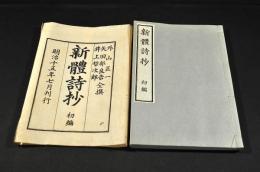 外山正一
矢田部良吉仝撰
井上哲次郎
新體詩抄 初編
明治十五年七月刊行
新體詩抄 初編